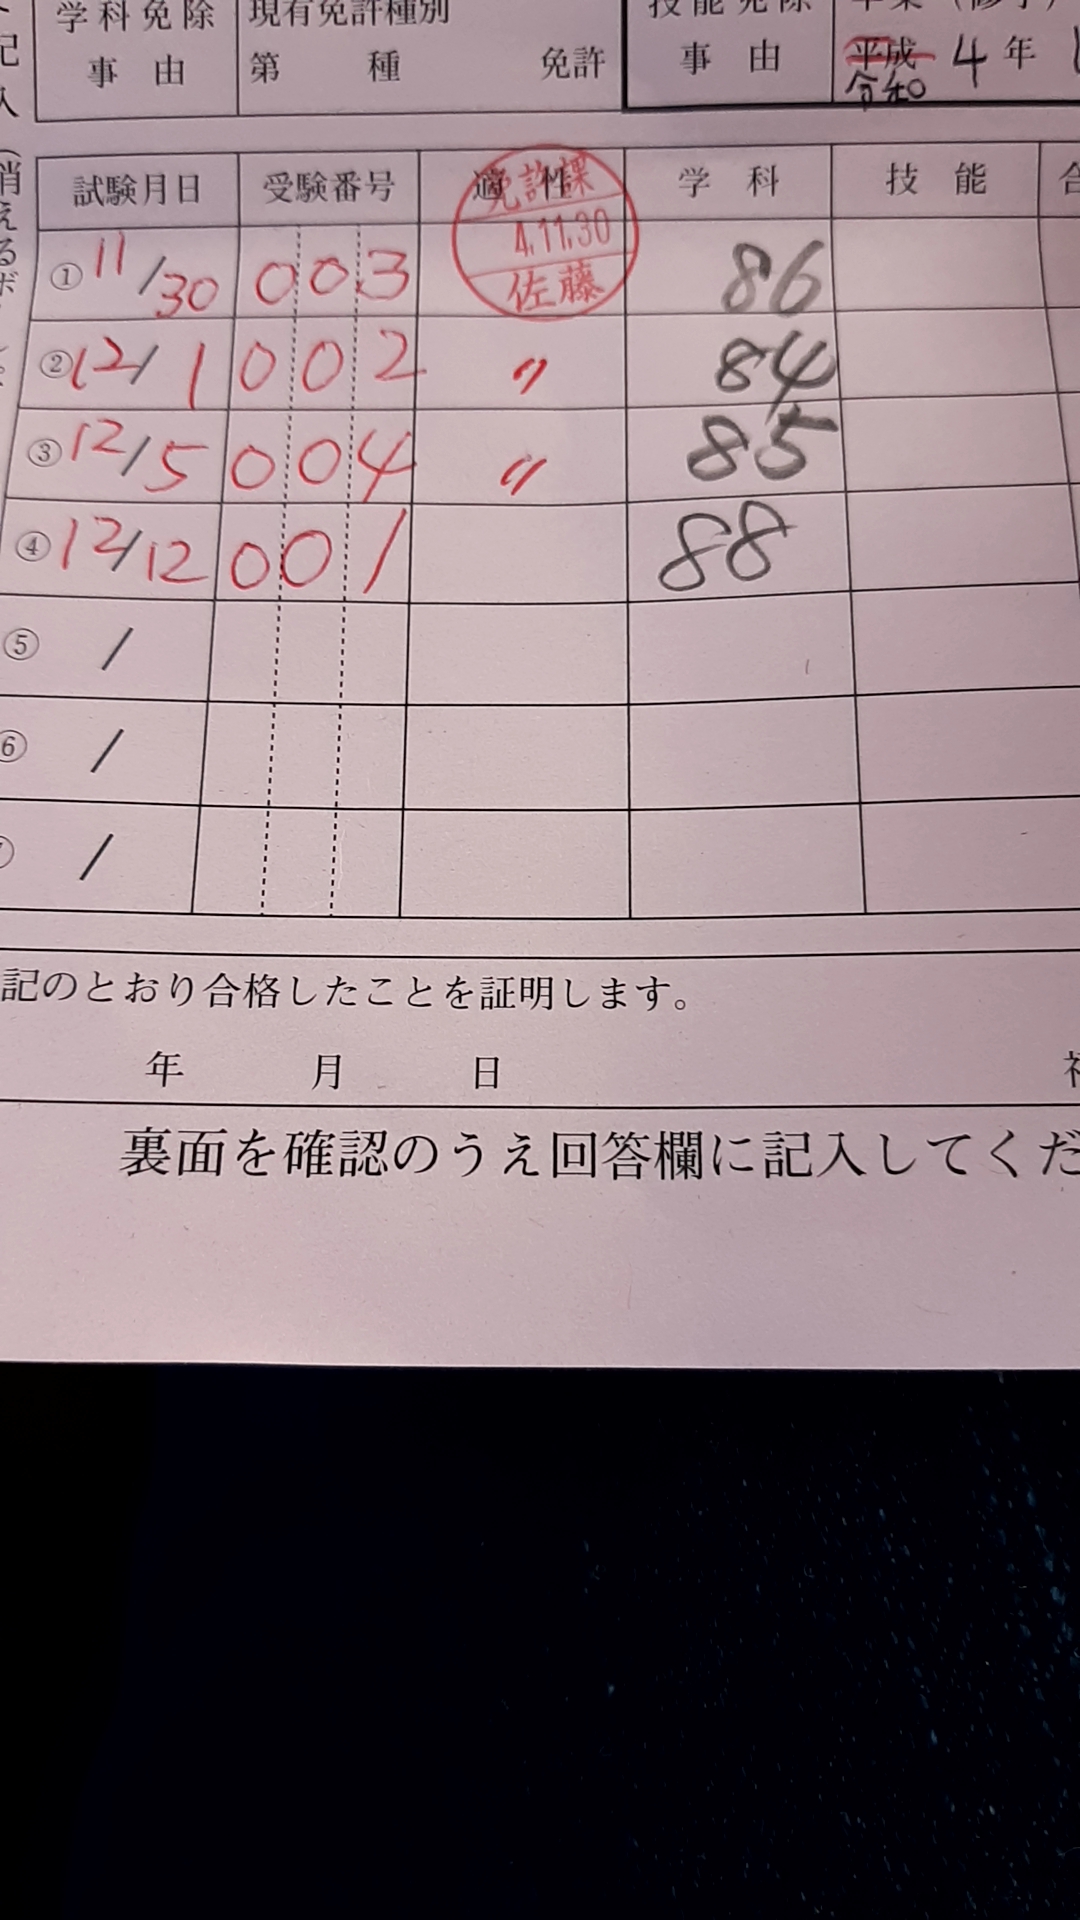 学科免除 現有免許種別 技能免除
事由 第 種 免許 事由 平成 4年
令和
試験月日 受験番号 適性 学科 技能
免許課
4.11.30
佐藤
① 11/30 003 86
② 12/1 002 〃 84
③ 12/5 004 〃 85
④ 12/12 001 88
⑤ /
⑥ /
/
記のとおり合格したことを証明します。
年 月 日
裏面を確認のうえ回答欄に記入してくだ